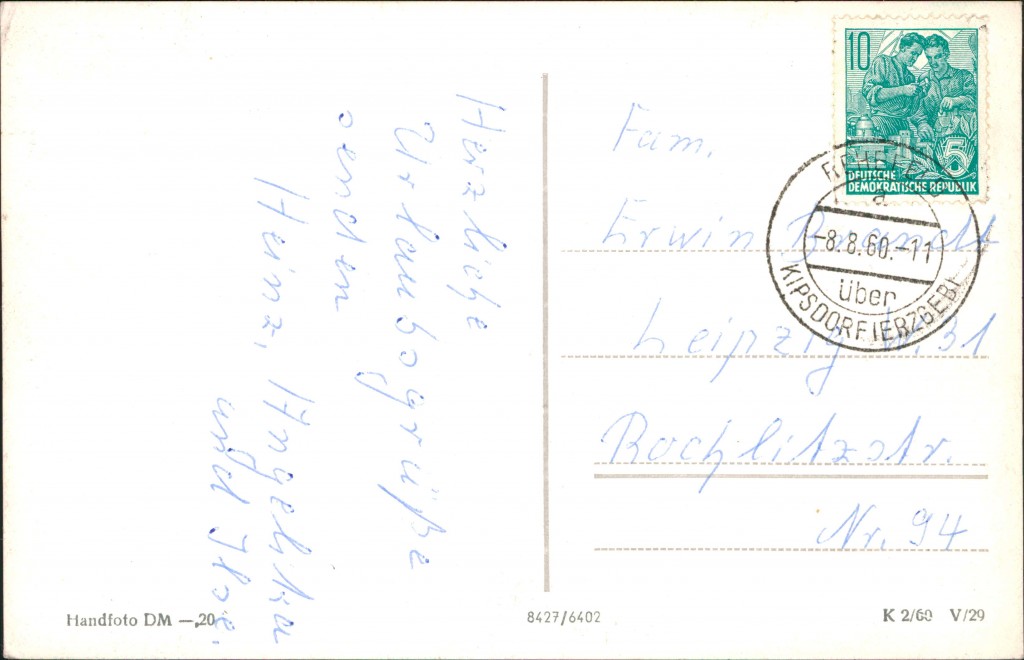 Herzliche
Urlaubsgrüße
senden
Heinz, Angelika
und Ilse.
10
5
DEUTSCHE
DEMOKRATISCHE REPUBLIK
a
-8.8.60.-11
über
KIPSDORF (ERZGEB)
Fam.
Erwin Brandt
Leipzig W. 31
Rochlitzstr.
Nr. 94
Handfoto DM —,20
8427/6402
K 2/60 V/29